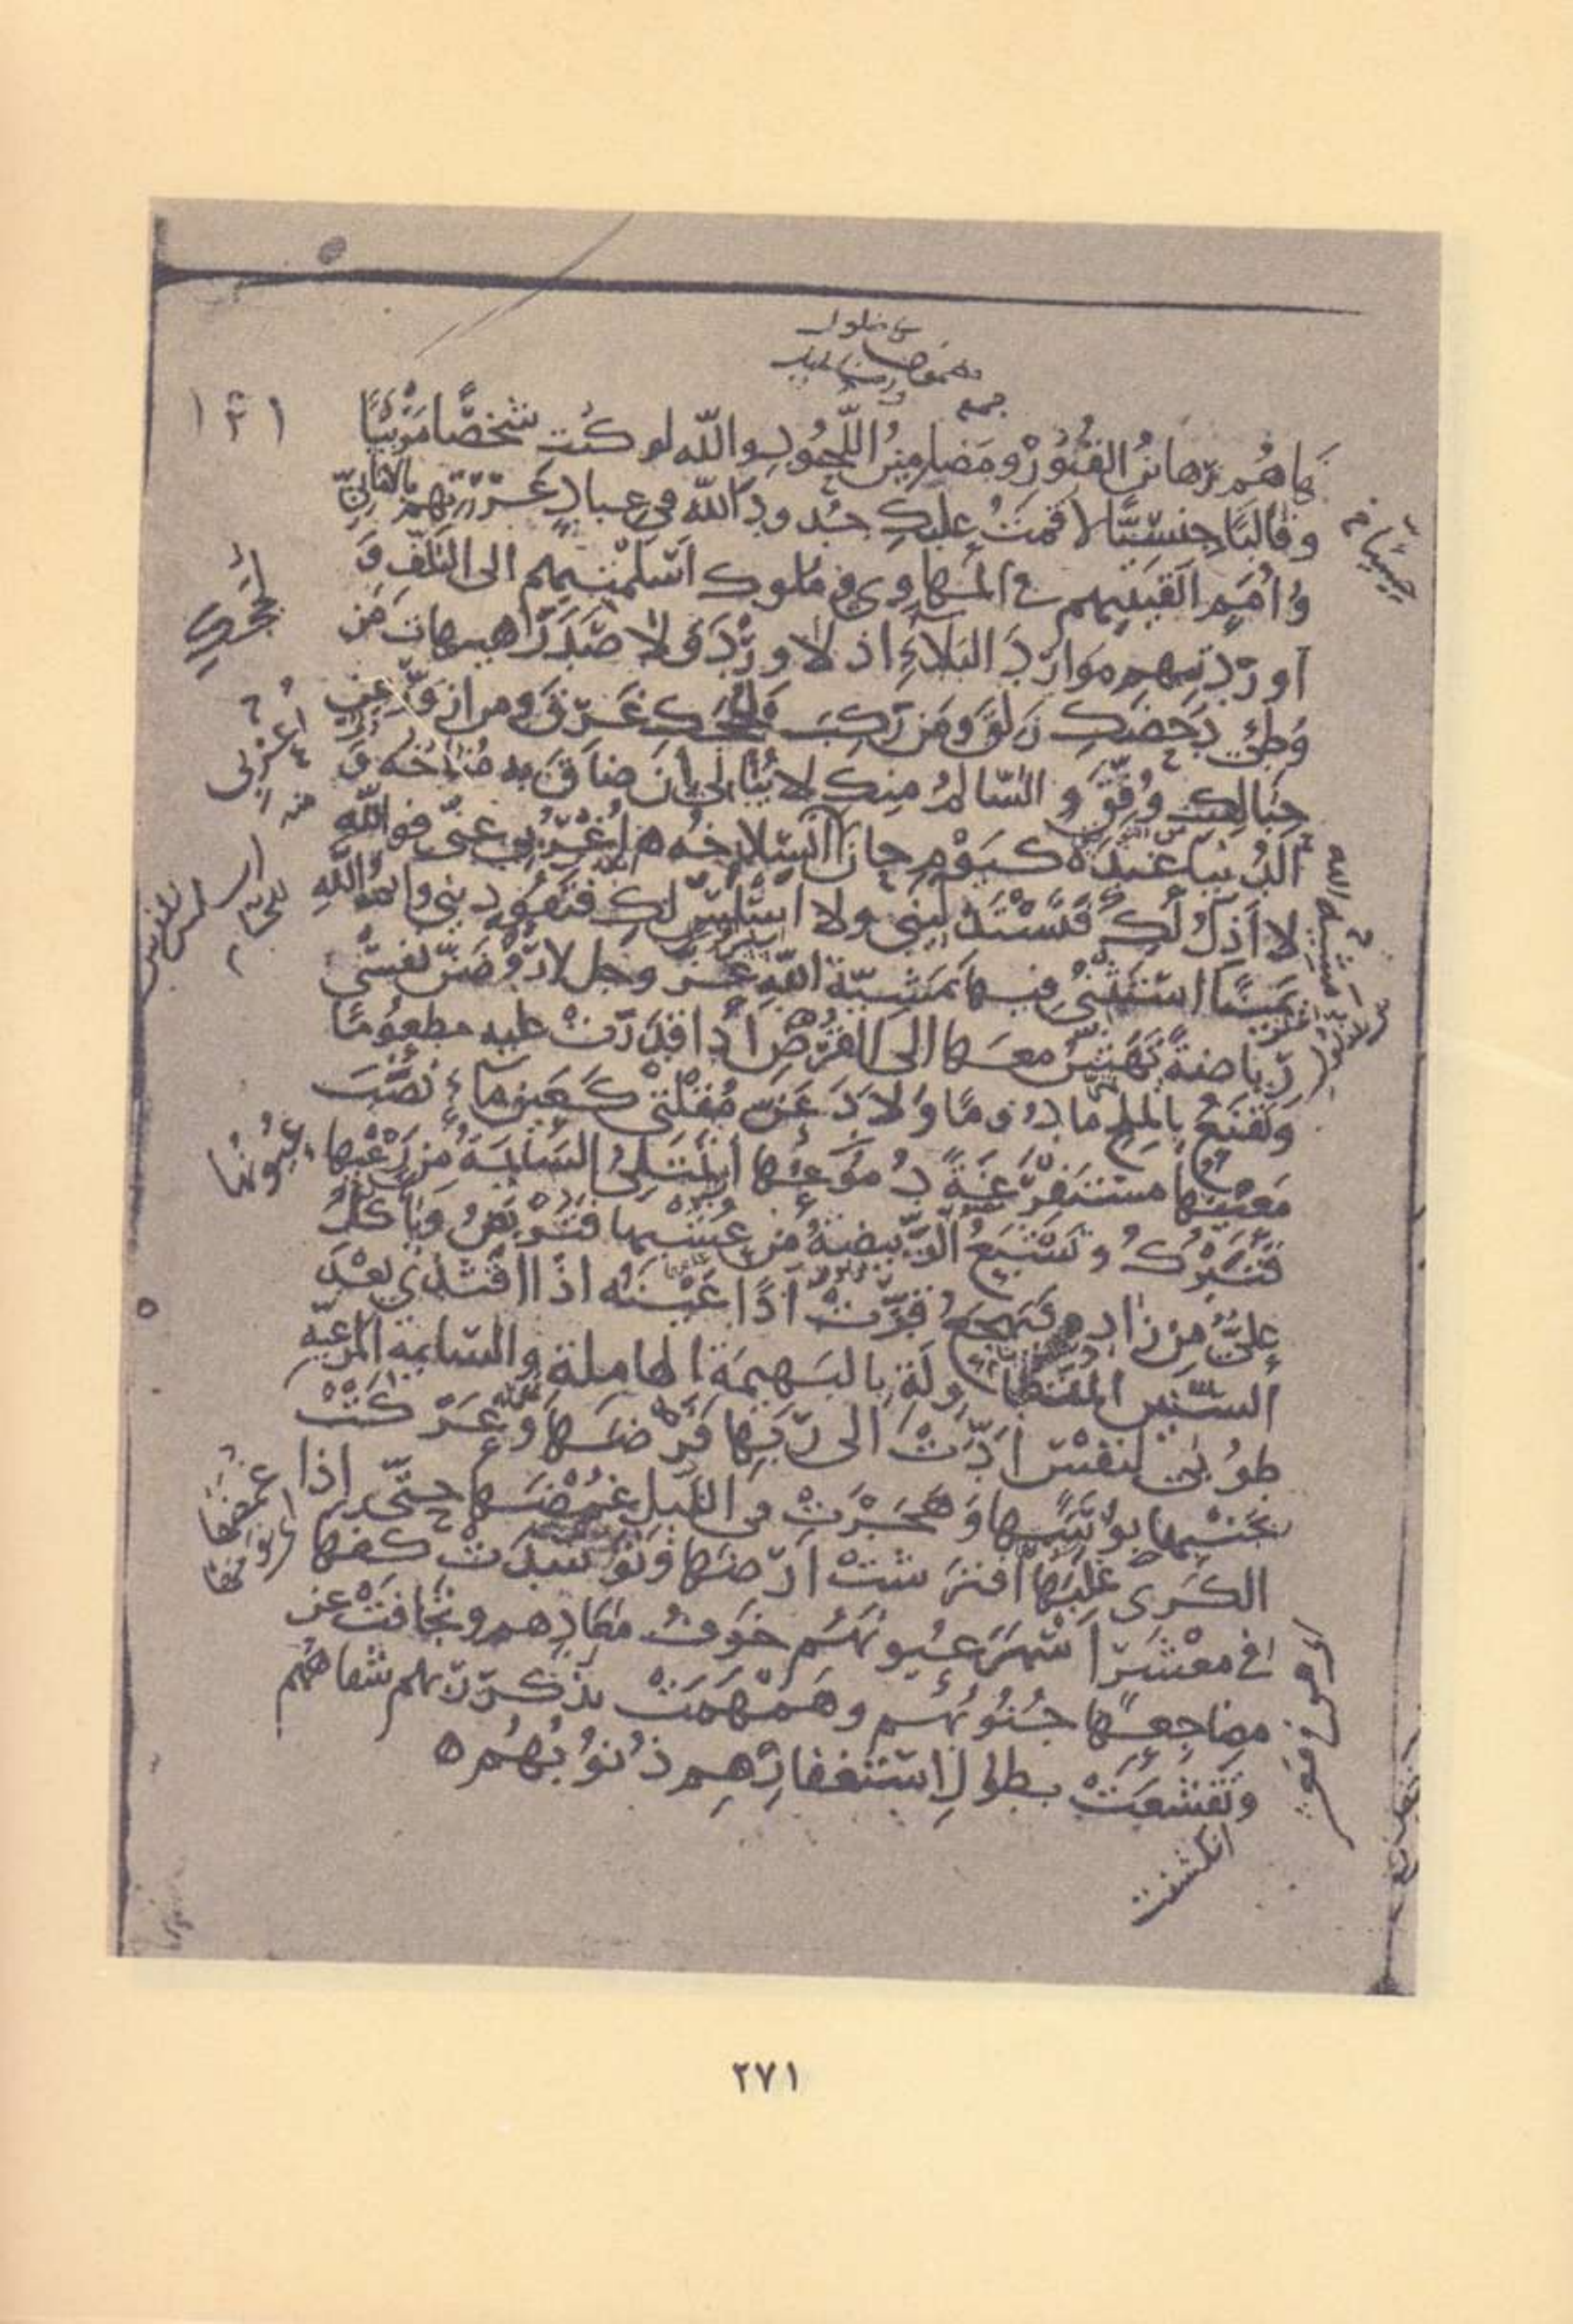 ١٣١
هَاهُم رَهائنُ القُبُورْ ومَضامِينُ اللُّحُودِ والله لو كُنتِ شخصًا مَرْئيًّا
وقالبًا حِسّيًّا لاقمتُ عليكِ حُدودَ الله في عبادٍ غَرَرْتِهم بالامانيّ
وأُمَمٍ القَيتِهم في المَهاوي وملوكٍ اسْلَمْتِهم الى التلَفِ وَ
اوردتِهم مَوارِدَ البَلاءِ اذ لا وِرْدَ ولا صَدَرَ هيهات مَن
وَطِئَ دَحْضَكِ زَلَقَ ومَن رَكِبَ لُجَجَكِ غَرِقَ ومن ازوَرَّ عن
حِبالكِ وُفّقَ والسّالمُ منكِ لا يُبالي إن ضاقَ به مُناخُه وَ
الدُنيا عندَه كيَوْمٍ حانَ انسِلاخُه اُعْزُبي عنّي فوالله
لا أذِلُّ لكِ فتَسْتَذلّيني ولا اسْلَسُ لكِ فتَقُوديني وايمُ اللهِ
يمينًا استثني فيها بمَشيّة اللهِ عزّ وجل لارُوضَنّ نفسي
رياضةً تَهَشُّ معها الى القُرْصِ اذا قدَرَتْ عليه مطعُومًا
وتَقنَعُ بالمِلحِ مأدُومًا ولادَعَنّ مُقلتي كعَينِ ماءٍ نَضَبَ
مَعينُها مستفرِغَةً دُموعُها أتمتلئ السّائمةُ من رِعْيها
فتَبْرُكُ وتشبَعُ الرّبيضةُ من عُشبِها فتَرْبِضُ ويأكلُ
عليٌّ من زادِه فيهجَعُ قرّتْ اذًا عَيْنُه اذا اقتدى بعْدَ
السّنين المتطاولة بالبهيمة الهاملة والسّائمة المَرعيّة
طوُبى لنفسٍ ادّتْ الى ربّها فَرْضَها وعَرَكَتْ
بجنبها بؤسَها وهَجَرَتْ في اللّيل غُمْضَها حتّى اذا
الكَرى عليها افترشَتْ ارضَها وتوسّدَتْ كفها
في معْشَرٍ أسْهَرَ عيونَهُم خوفُ معادِهم وتجافتْ عن
مضاجعِها جُنُوبُهُم وهَمْهَمَتْ بذكرِ ربّهم شفاهُهُم
وتقشّعَتْ بطولِ استغفارِهِم ذُنُوبُهُم ه
لُجَجَكِ
اعزبي
عيونها
انكشفت
٢٧١